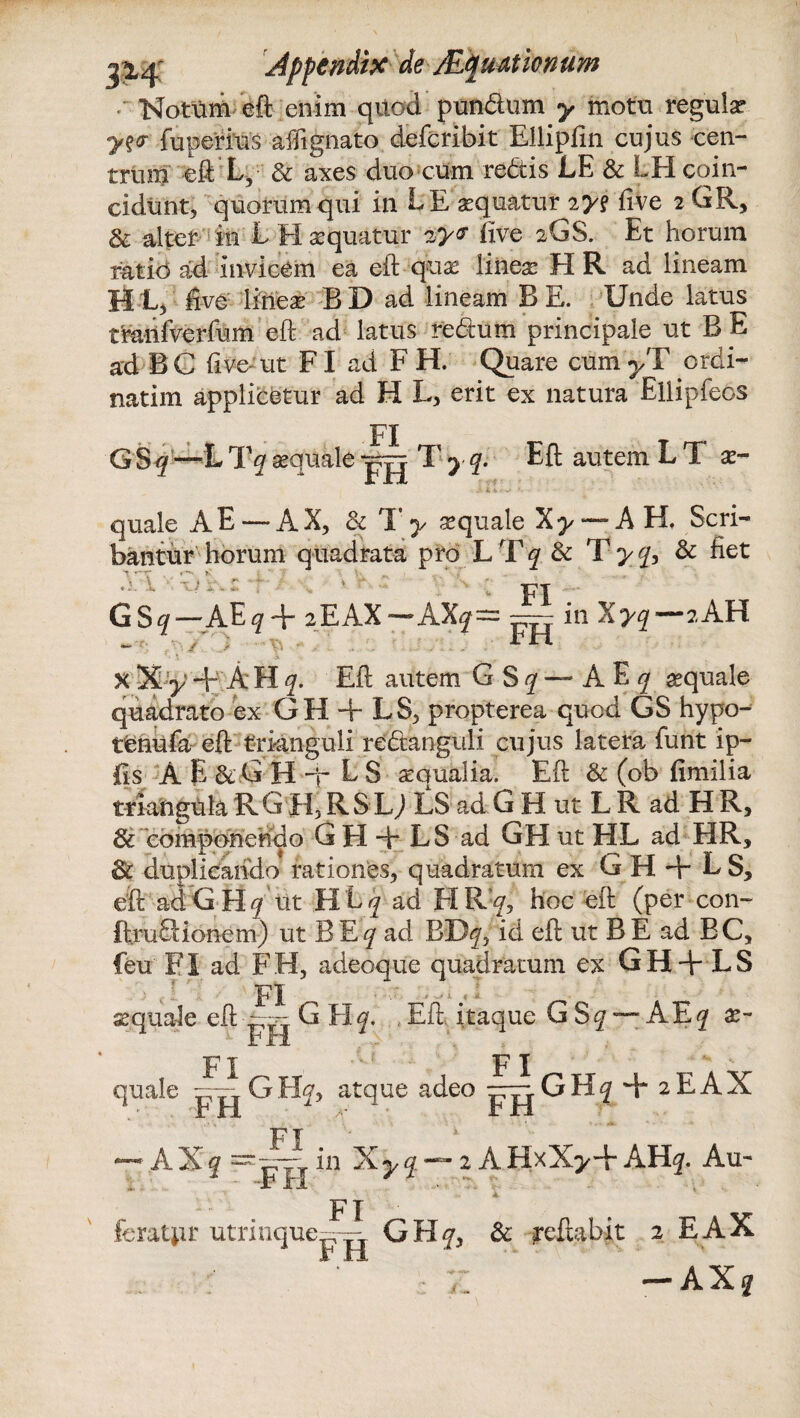 324 Appendix de Æquationum
Notum eſt enim quod punctum γ motu regulæ
γρσ ſuperius aſſignato deſcribit Ellipſin cujus cen-
trum eſt L, & axes duo cum rectis LE & LH coin-
cidunt, quorum qui in L E æquatur 2γρ ſive 2 GR,
& alter in L H æquatur 2γσ ſive 2GS. Et horum
ratio ad invicem ea eſt quæ lineæ H R ad lineam
H L, ſive lineæ B D ad lineam B E. Unde latus
tranſverſum eſt ad latus rectum principale ut B E
ad B C ſive ut F I ad F H. Quare cum γT ordi-
natim applicetur ad H L, erit ex natura Ellipſeos
GSq—LTq æquale FI/FH Tγq. Eſt autem L T æ-
quale AE — AX, & Tγ æquale Xγ — A H. Scri-
bantur horum quadrata pro LTq & Tγq, & fiet
GSq—AEq + 2EAX — AXq = FI/FH in Xγq — 2AH
x Xγ + AHq. Eſt autem G Sq — A Eq æquale
quadrato ex G H + LS, propterea quod GS hypo-
tenuſa eſt trianguli rectanguli cujus latera ſunt ip-
ſis A E & G H + L S æqualia. Eſt & (ob ſimilia
triangula RGH, RSL) LS ad G H ut L R ad H R,
& componendo G H + LS ad GH ut HL ad HR,
& duplicando rationes, quadratum ex G H + L S,
eſt ad GHq ut HLq ad HRq, hoc eſt (per con-
ſtructionem) ut BEq ad BDq, id eſt ut B E ad BC,
ſeu FI ad FH, adeoque quadratum ex GH + LS
æquale eſt FI/FH G Hq. Eſt itaque GSq — AEq æ-
quale FI/FH GHq, atque adeo FI/FH GHq + 2EAX
— AXq = FI/FH in Xγq — 2 AHxXγ + AHq. Au-
feratur utrinque FI/FH GHq, & reſtabit 2 EAX
— AXq